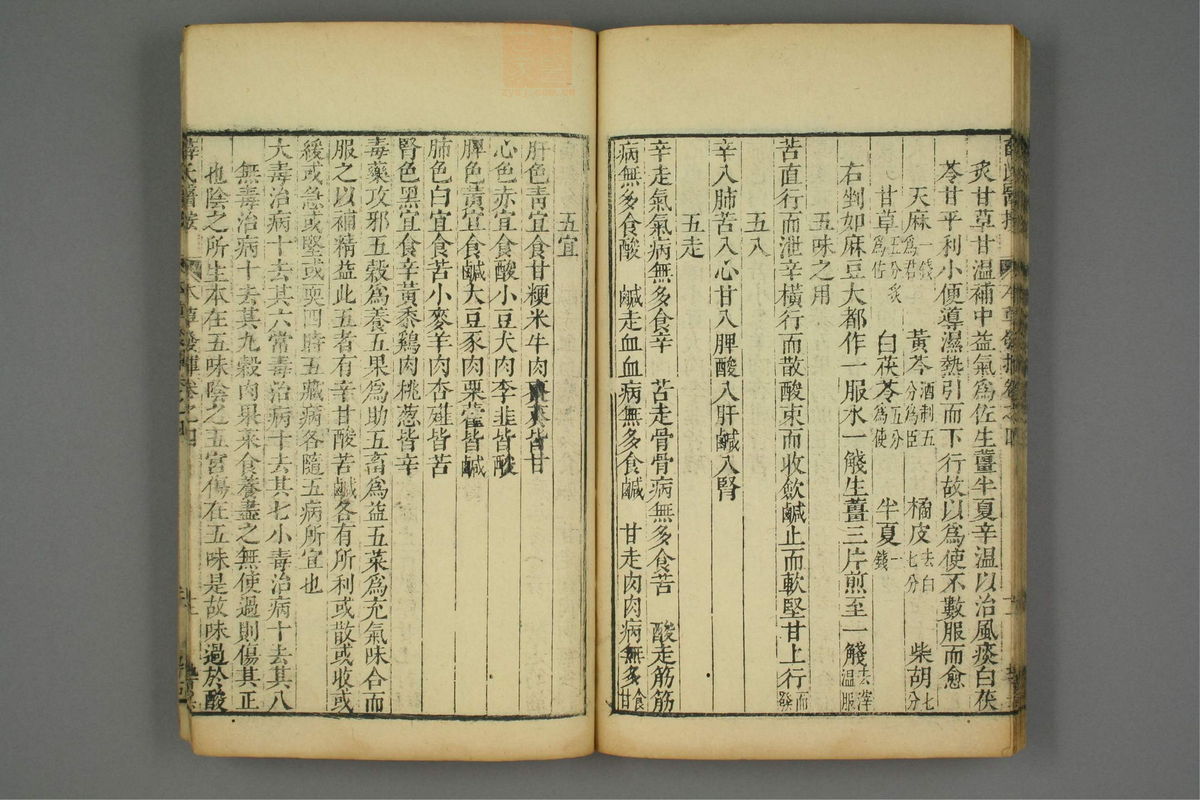 炙甘草甘溫補中益氣爲佐生薑半夏辛溫以治風痰白茯
苓甘平利小便導濕熱引而下行故以爲使不數服而愈
天麻一錢爲君 黃芩酒制五分爲臣 橘皮去白七分 柴胡七分
甘草五分炙爲佐 白茯苓五分爲使 半夏一錢
右剉如麻豆大都作一服水一醆生薑三片煎至一醆去滓溫服
五味之用
苦直行而泄辛橫行而散酸束而收斂鹹止而軟堅甘上行而發
五入
辛入肺苦入心甘入脾酸入肝鹹入腎
五走
辛走氣氣病無多食辛 苦走骨骨病無多食苦 酸走筋筋
病無多食酸 鹹走血血病無多食鹹 甘走肉肉病無多食甘
五宜
肝色青宜食甘粳米牛肉棗葵皆甘
心色赤宜食酸小豆犬肉李韭皆酸
脾色黃宜食鹹大豆豕肉栗藿皆鹹
肺色白宜食苦小麥羊肉杏薤皆苦
腎色黑宜食辛黃黍鷄肉桃葱皆辛
毒藥攻邪五穀爲養五果爲助五畜爲益五菜爲充氣味合而
服之以補精益此五者有辛甘酸苦鹹各有所利或散或收或
緩或急或堅或耎四時五藏病各隨五病所宜也
大毒治病十去其六常毒治病十去其七小毒治病十去其八
無毒治病十去其九穀肉果菜食養盡之無使過則傷其正
也陰之所生本在五味陰之五宮傷在五味是故味過於酸
薛氏醫按 本草發揮卷之四